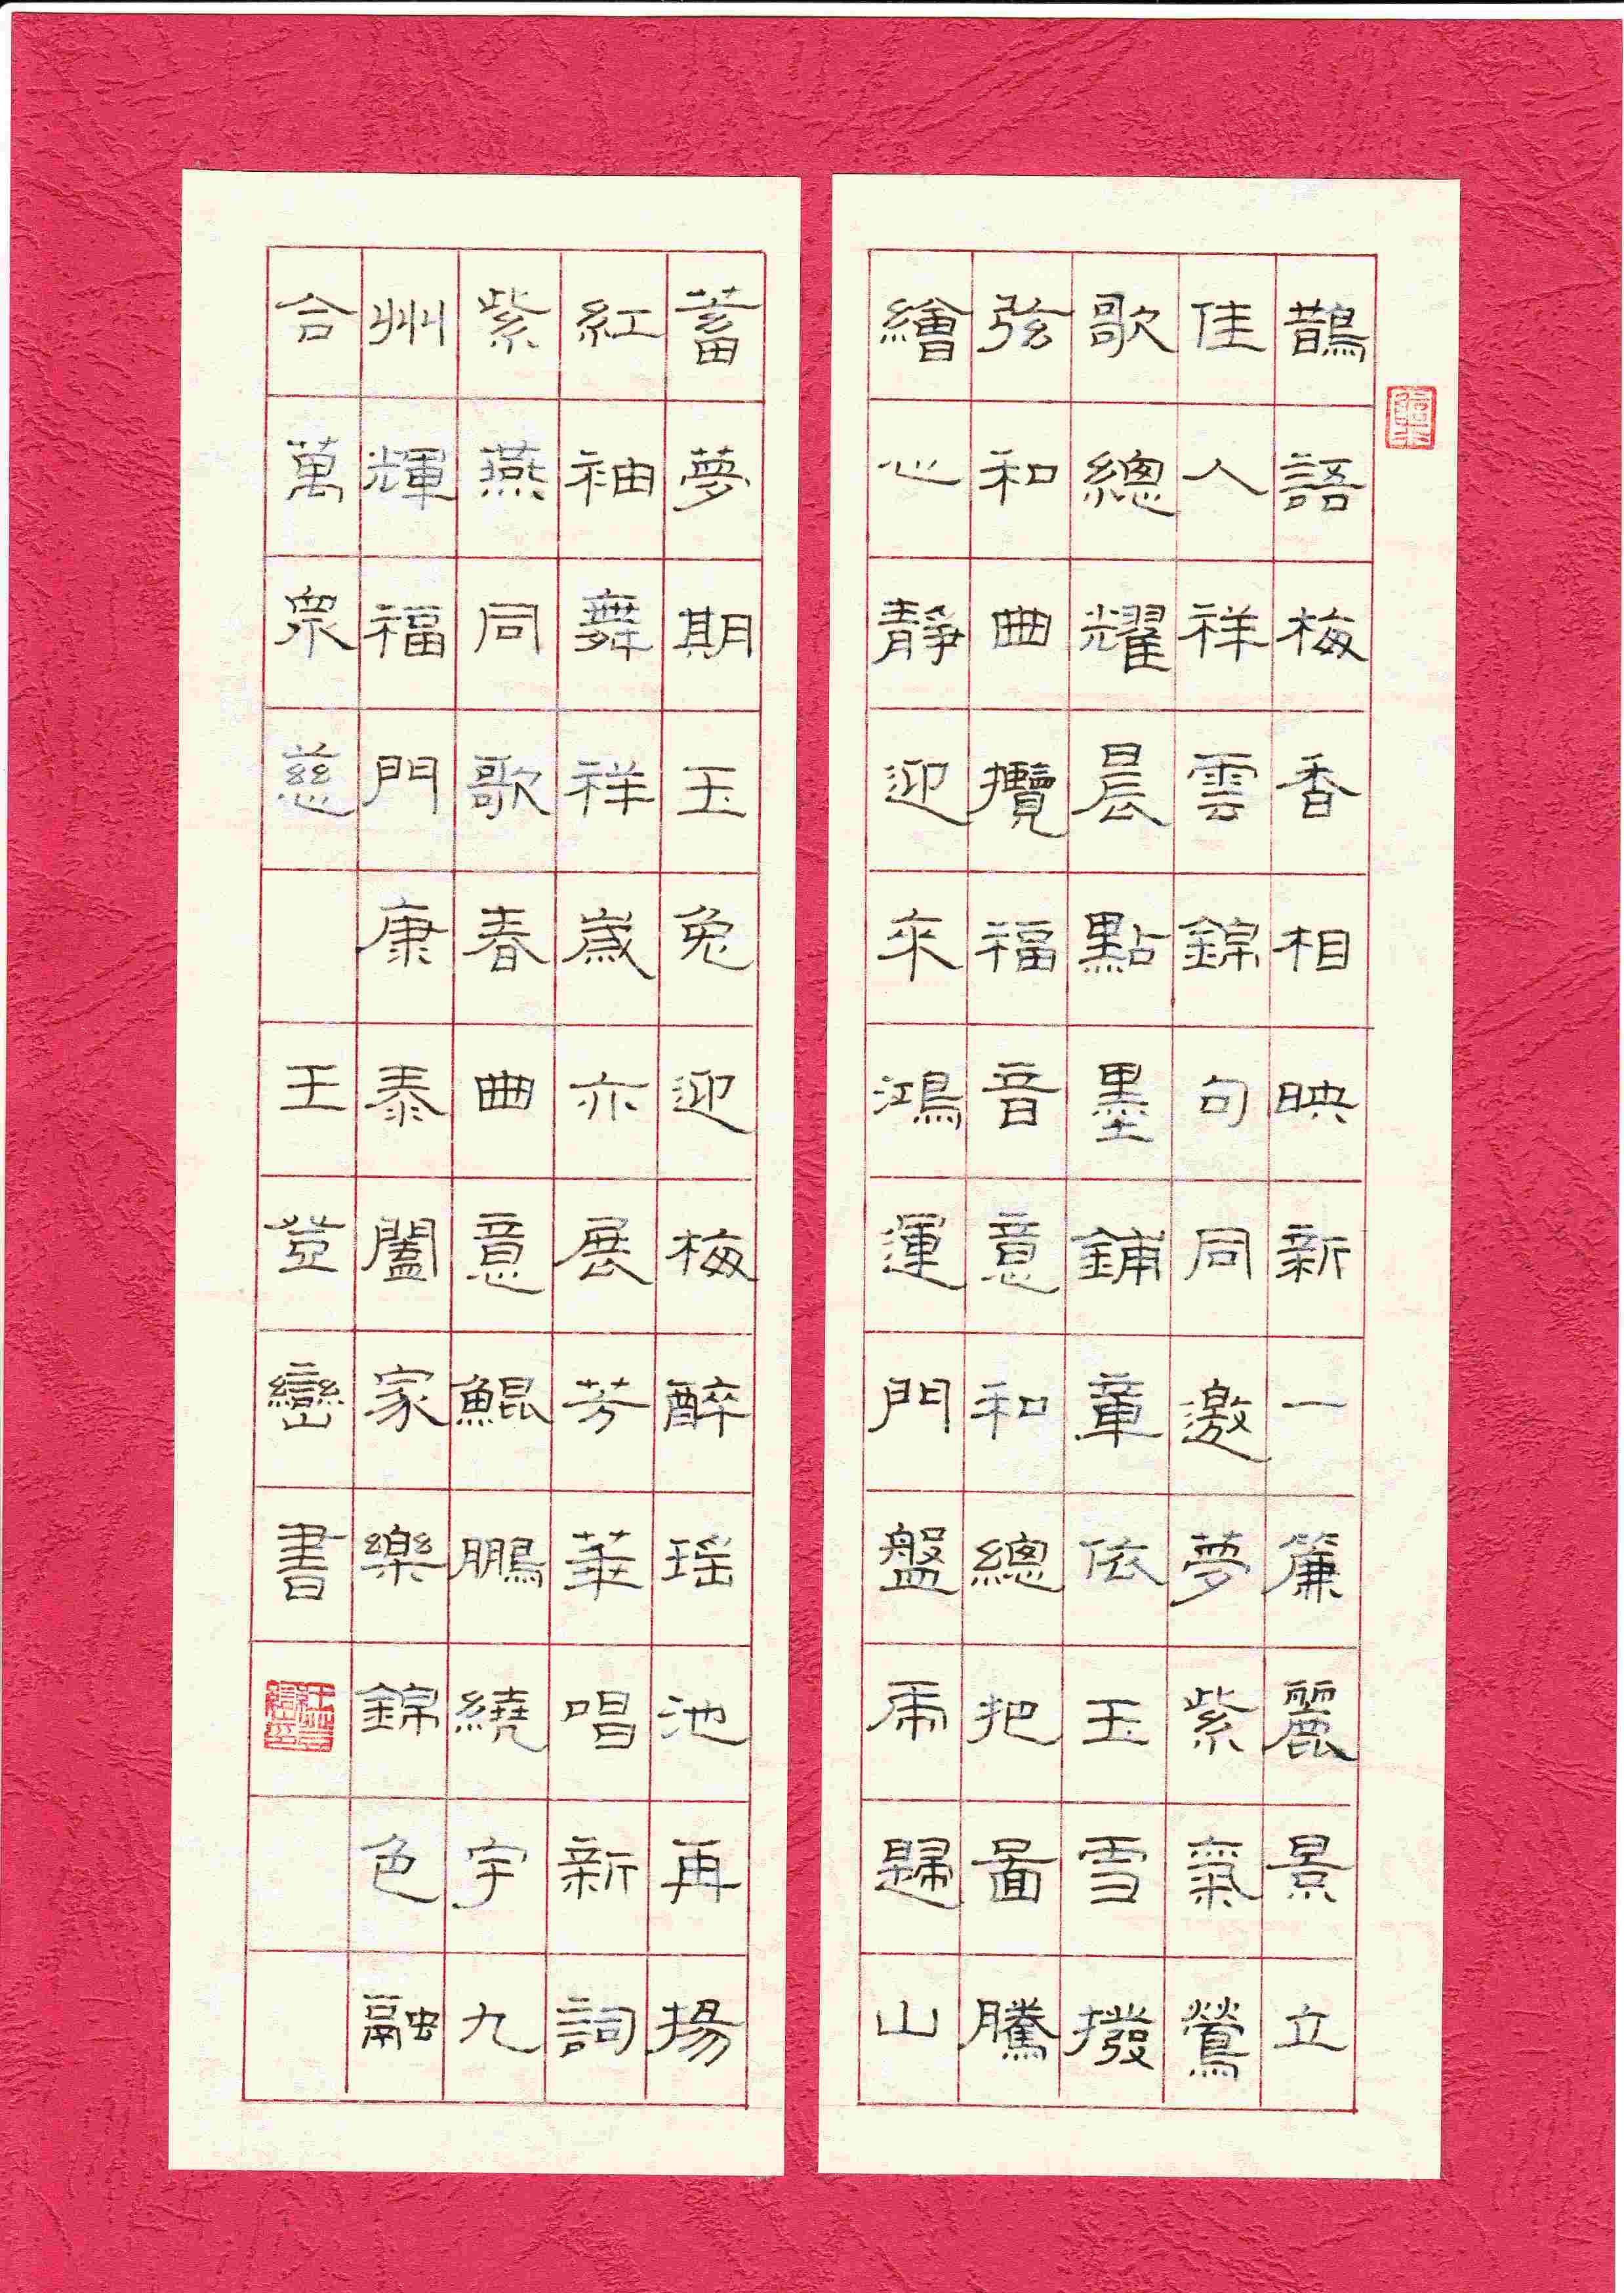 鵲語梅香相映新一簾麗景立
佳人祥雲錦句同邀夢紫氣鶯
歌總耀晨點墨鋪章依玉雪撥
弦和曲攬福音意和總把圖騰
繪心靜迎來鴻運門盤虎歸山
蓄夢期玉兔迎梅醉瑤池再揚
紅袖舞祥歲亦展芳華唱新詞
紫燕同歌春曲意鯤鵬繞宇九
州輝福門康泰闔家樂錦色融
合萬眾慈
王莖巒書